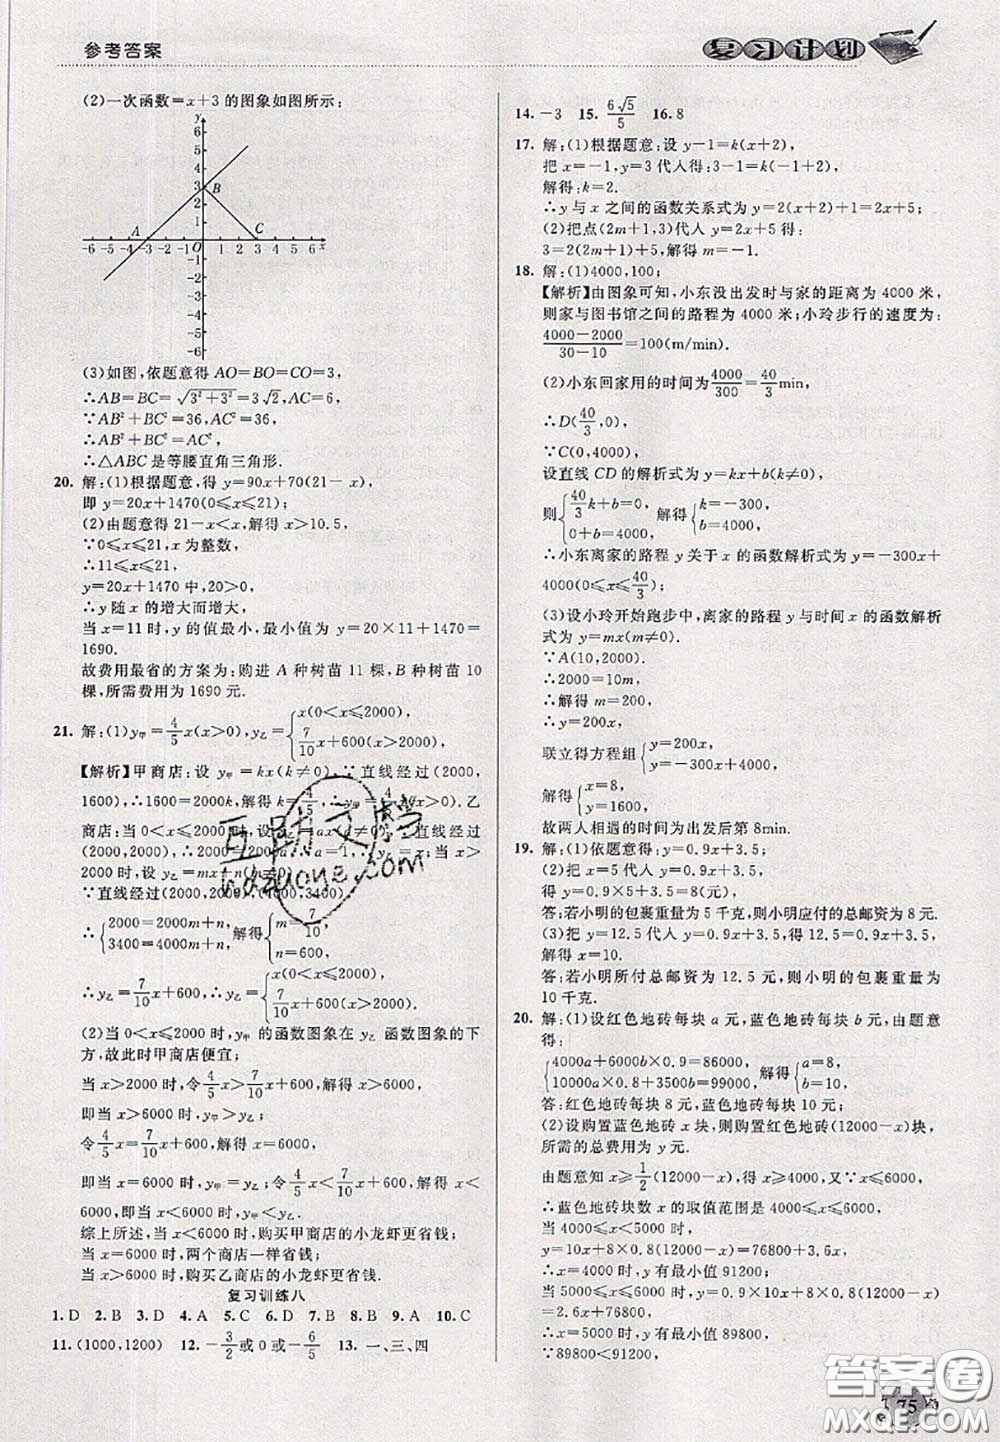 参考答案
复习计划
(2)一次函数=x+3的图象如图所示:
y
6
5
4
3 B
2
1
A C
-6 -5 -4 -3 -2 -1 O 1 2 3 4 5 6 x
-1
-2
-3
-4
-5
-6
(3)如图,依题意得 AO=BO=CO=3,
∴AB=BC=√(3²+3²)=3√2,AC=6,
∵AB²+BC²=36,AC²=36,
∴AB²+BC²=AC²,
∴△ABC是等腰直角三角形.
20. 解:(1)根据题意,得 y=90x+70(21-x),
即 y=20x+1470(0⩽x⩽21);
(2)由题意得21-x<x,解得 x>10.5,
∵0⩽x⩽21,x为整数,
∴11⩽x⩽21,
y=20x+1470中,20>0,
∴y随x的增大而增大,
当x=11时,y的值最小,最小值为 y=20×11+1470=
1690.
故费用最省的方案为:购进A种树苗11棵,B种树苗10
棵,所需费用为1690元.
21. 解:(1)y甲=4/5x(x>0),y乙={x(0<x⩽2000), 7/10x+600(x>2000),
【解析】甲商店:设 y甲=kx(k≠0),∵直线经过(2000,
1600),∴1600=2000k,解得 k=4/5,∴y甲=4/5x(x>0).乙
商店:当0<x⩽2000时,设 y乙=ax(a≠0),∵直线经过
(2000,2000),∴2000=2000a,∴a=1,∴y乙=x;当x>
2000时,设 y乙=mx+n(m≠0),
∵直线经过(2000,2000),(3000,3400),
∴{2000=2000m+n, 3400=4000m+n,解得{m=7/10, n=600,
∴y乙=7/10x+600,∴y乙={x(0<x⩽2000) 7/10x+600(x>2000).
(2)当0<x⩽2000时,y甲的函数图象在y乙函数图象的下
方,故此时甲商店便宜;
当x>2000时,令4/5x>7/10x+600,解得 x>6000,
即当x>6000时,y甲>y乙;
令4/5x=7/10x+600,解得 x=6000,
即当x=6000时,y甲=y乙;令4/5x<7/10x+600,解得 x<6000,
即当x<6000时,y甲<y乙.
综上所述,当x<6000时,购买甲商店的小龙虾更省钱;
当x=6000时,两个商店一样省钱;
当x>6000时,购买乙商店的小龙虾更省钱.
复习训练八
1.D 2.B 3.D 4.A 5.C 6.D 7.B 8.B 9.A 10.C
11.(1000,1200) 12.-3/2或0或-6/5 13.一、三、四
14.-3 15.6√5/5 16.8
17. 解:(1)根据题意:设 y-1=k(x+2),
把 x=-1,y=3代入得:3-1=k(-1+2),
解得:k=2.
∴y与x之间的函数关系式为 y=2(x+2)+1=2x+5;
(2)把点(2m+1,3)代入 y=2x+5得:
3=2(2m+1)+5,解得 m=-2.
18. 解:(1)4000,100;
【解析】由图象可知,小东没出发时与家的距离为4000米,
则家与图书馆之间的路程为4000米;小玲步行的速度为:
4000-2000/30-10=100(m/min).
(2)小东回家用的时间为4000/300=40/3min,
∴D(40/3,0),
∵C(0,4000),
设直线CD的解析式为 y=kx+b(k≠0),
则{40/3k+b=0, 0+b=4000,解得{k=-300, b=4000,
∴小东离家的路程y关于x的函数解析式为 y=-300x+
4000(0⩽x⩽40/3);
(3)设小玲开始跑步中,离家的路程y与时间x的函数解析
式为 y=mx(m≠0).
∵A(10,2000),
∴2000=10m,
∴解得 m=200,
∴y=200x,
联立得方程组{y=200x, y=-300x+4000,
解得{x=8, y=1600,
故两人相遇的时间为出发后第8min.
19. 解:(1)依题意得:y=0.9x+3.5;
(2)把 x=5代入 y=0.9x+3.5,得
y=0.9×5+3.5=8(元),
答:若小明的包裹重量为5千克,则小明应付的总邮资为8元.
(3)把 y=12.5代入 y=0.9x+3.5,得12.5=0.9x+3.5,
解得 x=10.
答:若小明所付总邮资为12.5元,则小明的包裹重量为
10千克.
20. 解:(1)设红色地砖每块a元,蓝色地砖每块b元,由题意
得:
{4000a+6000b×0.9=86000, 10000a×0.8+3500b=99000,解得{a=8, b=10.
答:红色地砖每块8元,蓝色地砖每块10元.
(2)设购置蓝色地砖x块,则购置红色地砖(12000-x)块,
所需的总费用为y元.
由题意知 x⩾1/2(12000-x),得 x⩾4000,又∵x⩽6000,
∴蓝色地砖块数x的取值范围是4000⩽x⩽6000,
当4000⩽x<5000时,
y=10x+8×0.8(12000-x)=76800+3.6x,
∴x=4000时,y有最小值91200,
当5000⩽x⩽6000时,y=0.9×10x+8×0.8(12000-x)
=2.6x+76800,
∴x=5000时,y有最小值89800,
∵89800<91200,
75
互助文档
huzuone.com
答案圈
MXQE.COM